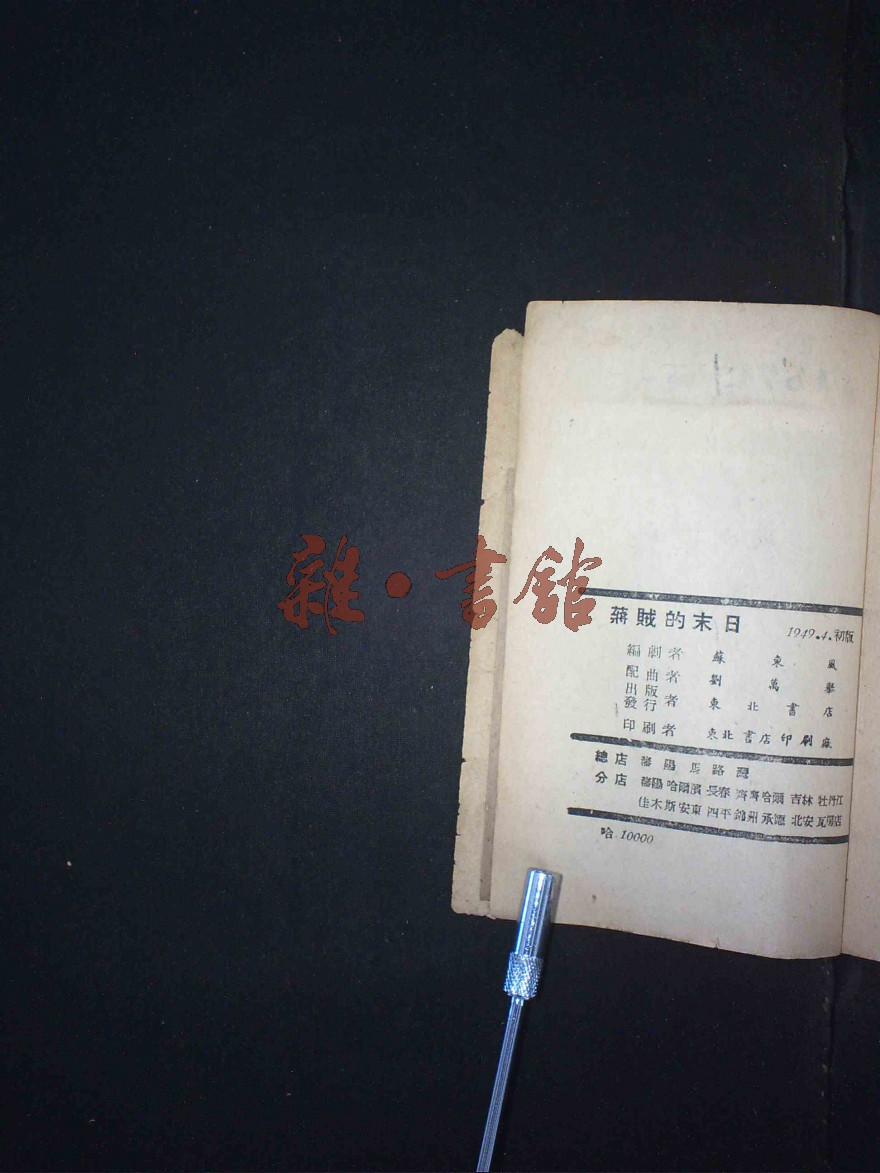 雜·書舘
蔣賊的末日
1949.4.初版
編劇者 蘇東風
配曲者 劉萬
出版
發行者 東北書店
印刷者 東北書店印刷廠
總店 瀋陽馬路灣
分店 瀋陽 哈爾濱 長春 齊齊哈爾 吉林 牡丹江
佳木斯 安東 四平 錦州 承德 北安 瓦房店
哈.10000